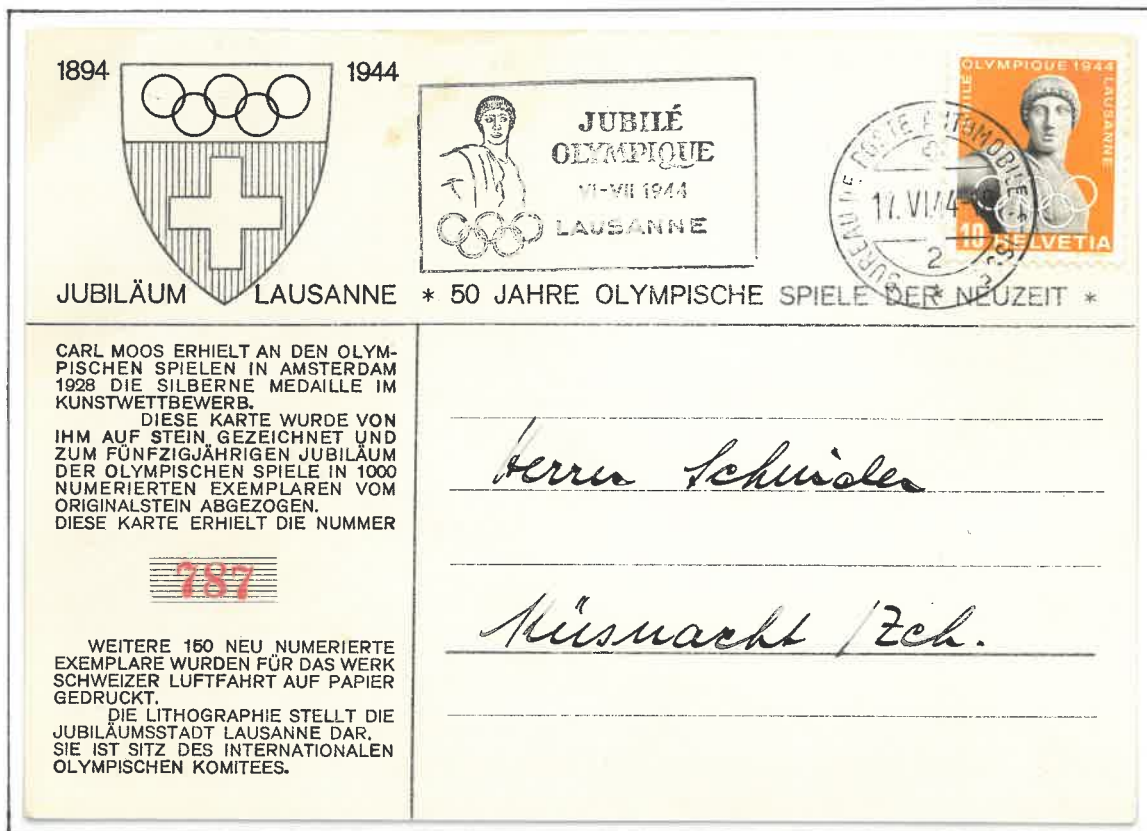 1894 1944
JUBILÉ
OLYMPIQUE
VI-VII 1944
LAUSANNE
OLYMPIQUE 1944
LAUSANNE
BUREAU DE POSTE AUTOMOBILE SUISSE
17.VI.44
2
10 HELVETIA
JUBILÄUM LAUSANNE * 50 JAHRE OLYMPISCHE SPIELE DER NEUZEIT *
CARL MOOS ERHIELT AN DEN OLYM-
PISCHEN SPIELEN IN AMSTERDAM
1928 DIE SILBERNE MEDAILLE IM
KUNSTWETTBEWERB.
DIESE KARTE WURDE VON
IHM AUF STEIN GEZEICHNET UND
ZUM FÜNFZIGJÄHRIGEN JUBILÄUM
DER OLYMPISCHEN SPIELE IN 1000
NUMERIERTEN EXEMPLAREN VOM
ORIGINALSTEIN ABGEZOGEN.
DIESE KARTE ERHIELT DIE NUMMER
787
WEITERE 150 NEU NUMERIERTE
EXEMPLARE WURDEN FÜR DAS WERK
SCHWEIZER LUFTFAHRT AUF PAPIER
GEDRUCKT.
DIE LITHOGRAPHIE STELLT DIE
JUBILÄUMSSTADT LAUSANNE DAR.
SIE IST SITZ DES INTERNATIONALEN
OLYMPISCHEN KOMITEES.
Herrn Schnider
Küsnacht /Zch.